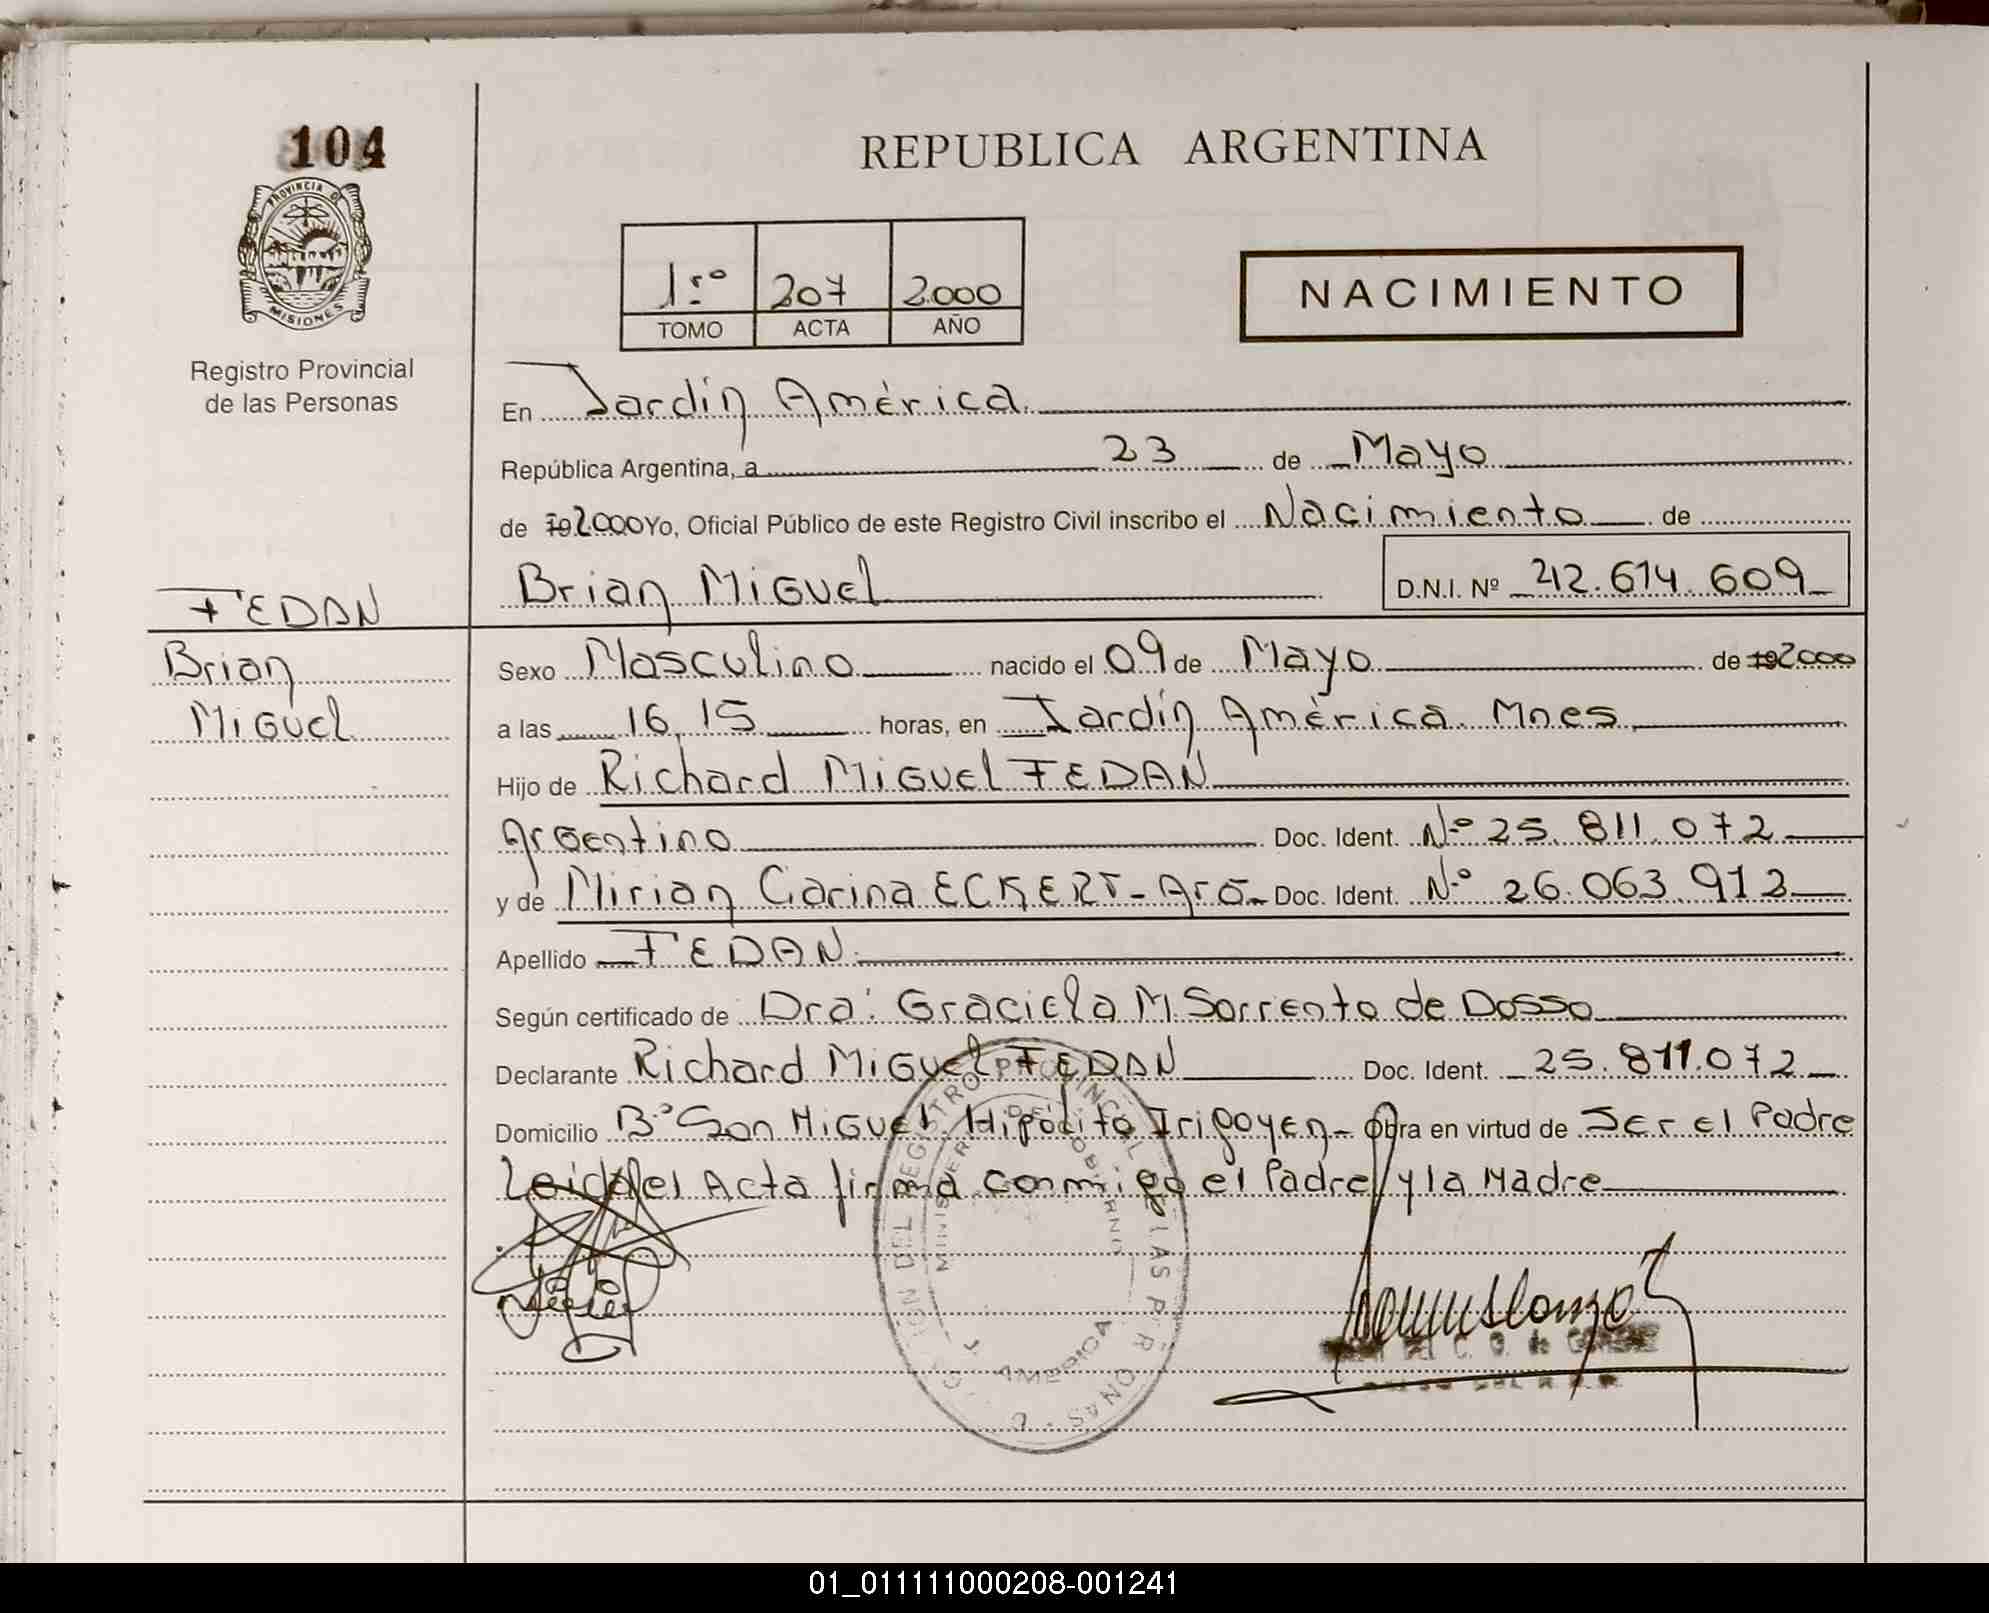 104
PROVINCIA DE
MISIONES
Registro Provincial
de las Personas
REPUBLICA ARGENTINA
1:º 207 2.000
TOMO ACTA AÑO
NACIMIENTO
En Jardín América.
República Argentina, a 23 de Mayo
de 192.000 Yo, Oficial Público de este Registro Civil inscribo el Nacimiento de
Brian MiGuel D.N.I. Nº 42.614.609
FEDAN
Brian
MiGuel
Sexo Masculino nacido el 09 de Mayo de 192.000
a las 16,15 horas, en Jardín América. Mnes.
Hijo de Richard MiGuel FEDAN
Argentino Doc. Ident. Nº 25.811.072
y de Mirian Carina ECKERT - Arg. Doc. Ident. Nº 26.063.912
Apellido FEDAN
Según certificado de Dra: Graciela M Sorrento de Dosso
Declarante Richard MiGuel FEDAN Doc. Ident. 25.811.072
Domicilio Bº San MiGuel Hipólito Irigoyen - Obra en virtud de Ser el Padre
Leida el Acta firma conmigo el Padre y la Madre
AMERICA
01_011111000208-001241